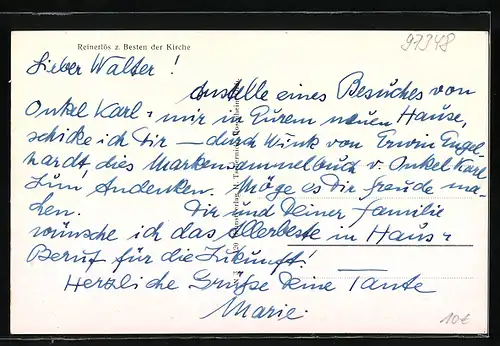 97348
Reinerlös z. Besten der Kirche
Lieber Walter!
Anstelle eines Besuches von
Onkel Karl - mir in Eurem neuen Hause,
schicke ich Dir — durch Wink von Erwin Engel-
hardt, dies Markensammelbuch v. Onkel Karl
zum Andenken. Möge es Dir Freude ma-
chen. Dir und Deiner Familie
wünsche ich das Allerbeste in Haus-
Beruf für die Zukunft!
Herzliche Grüße Deine Tante
Marie.
10€